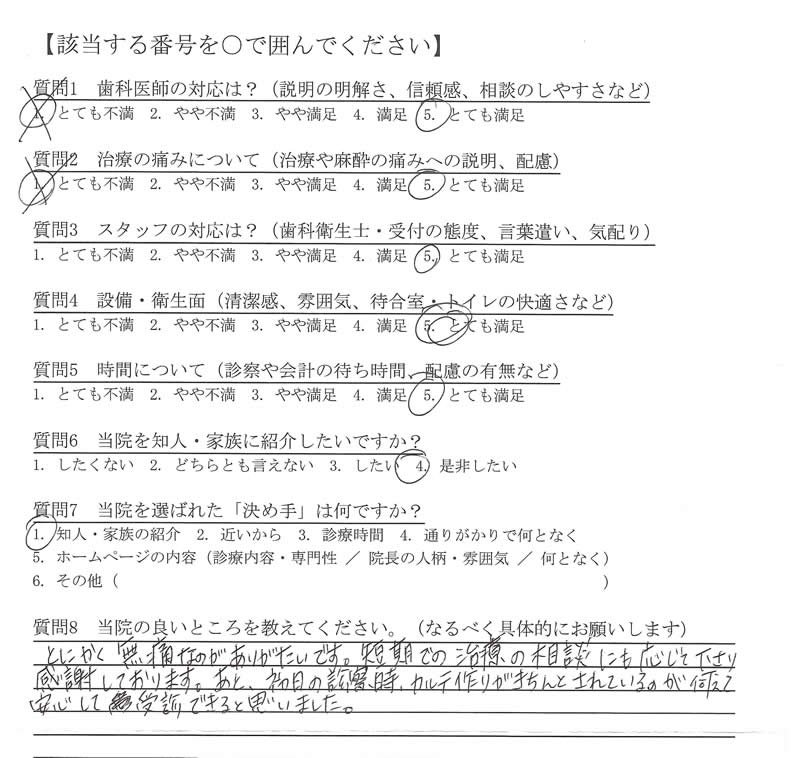 【該当する番号を○で囲んでください】
質問1 歯科医師の対応は？（説明の明解さ、信頼感、相談のしやすさなど）
1. とても不満 2. やや不満 3. やや満足 4. 満足 5. とても満足
質問2 治療の痛みについて（治療や麻酔の痛みへの説明、配慮）
1. とても不満 2. やや不満 3. やや満足 4. 満足 5. とても満足
質問3 スタッフの対応は？（歯科衛生士・受付の態度、言葉遣い、気配り）
1. とても不満 2. やや不満 3. やや満足 4. 満足 5. とても満足
質問4 設備・衛生面（清潔感、雰囲気、待合室・トイレの快適さなど）
1. とても不満 2. やや不満 3. やや満足 4. 満足 5. とても満足
質問5 時間について（診察や会計の待ち時間、配慮の有無など）
1. とても不満 2. やや不満 3. やや満足 4. 満足 5. とても満足
質問6 当院を知人・家族に紹介したいですか？
1. したくない 2. どちらとも言えない 3. したい 4. 是非したい
質問7 当院を選ばれた「決め手」は何ですか？
1. 知人・家族の紹介 2. 近いから 3. 診療時間 4. 通りがかりで何となく
5. ホームページの内容（診療内容・専門性 ／ 院長の人柄・雰囲気 ／ 何となく）
6. その他（ ）
質問8 当院の良いところを教えてください。（なるべく具体的にお願いします）
とにかく無痛なのがありがたいです。短期での治療の相談にも応じて下さり
感謝しております。あと、初日の診察時、カルテ作りがきちんとされているのが伺えて
安心して受診できると思いました。